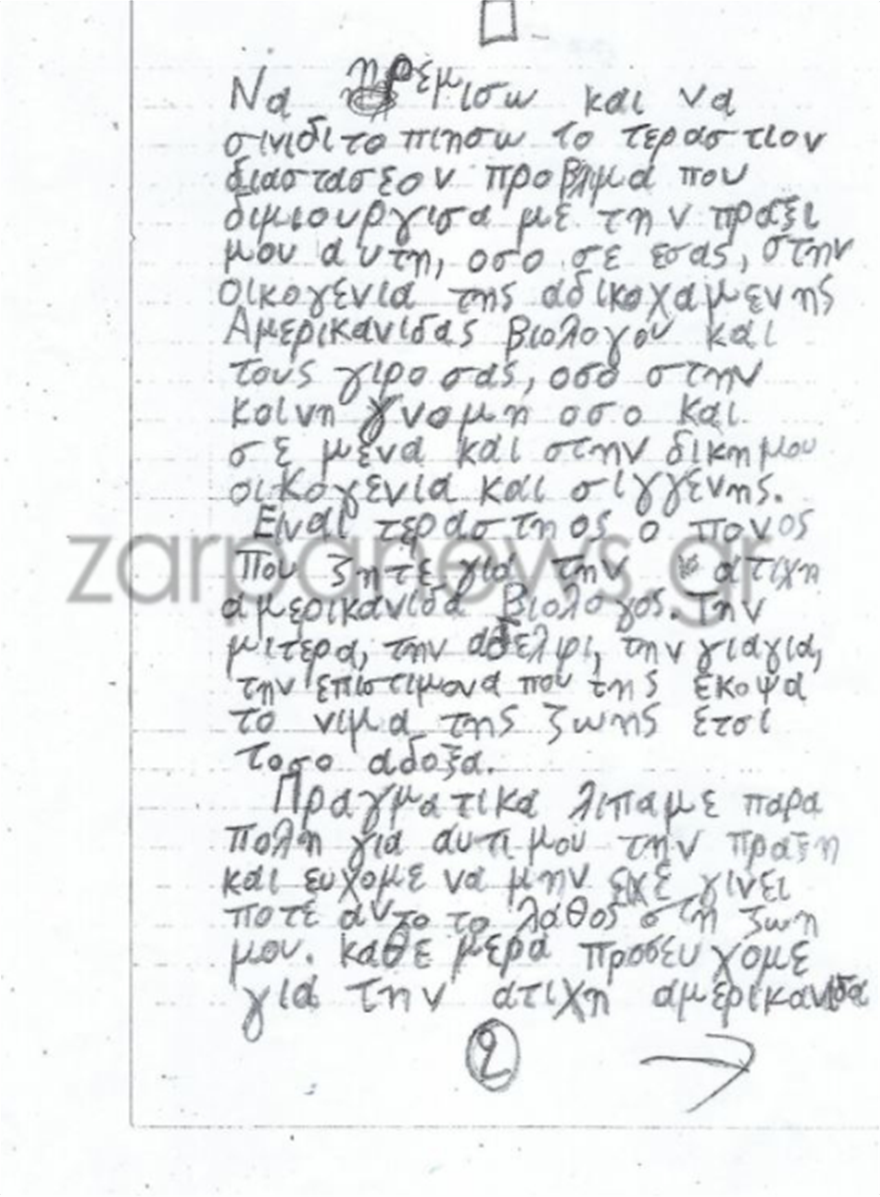 Να ηρεμισω και να
σινιδιτοπιησω το τεραστιον
διαστασεον προβλιμα που
διμιουργισα με την πραξι
μου αυτη, οσο σε εσας, στην
οικογενια της αδικοχαμενης
Αμερικανιδας βιολογου και
τους γιρο σας, οσο στην
κοινη γνομη οσο και
σε μενα και στην δικη μου
οικογενια και σιγγενης.
Ειναι τεραστηος ο πονος
που ζητε για την ατιχη
αμερικανιδα βιολογος. Την
zarpanews.gr
μιτερα, την αδελφι, την γιαγια,
την επιστιμονα που της εκοψα
το νιμα της ζωης ετσι
τοσο αδοξα.
Πραγματικα λιπαμε παρα
πολη για αυτι μου την πραξη
και ευχομε να μην ειχε γινει
ποτε αυτο το λαθος στη ζωη
μου. καθε μερα προσευχομε
για την ατιχη αμερικανιδα
2